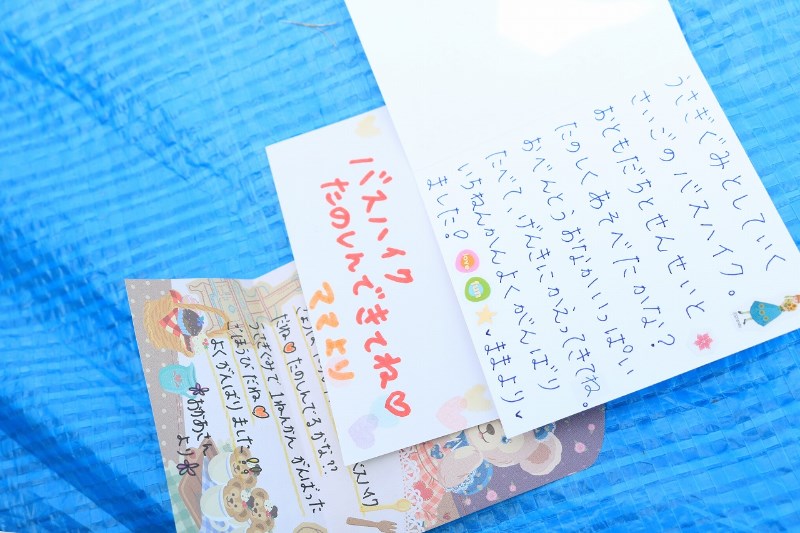 うさぎぐみとしていく
さいごの バスハイク。
おともだちとせんせいと
たのしくあそべたかな?
おべんとうおなかいっぱい
たべて、げんきにかえってきてね。
いちねんかんよくがんばり
ました!
♥ままより♥
バスハイク
たのしんできてね♡
ママより
バスハイク
だね♡たのしんでるかな??
うさぎぐみで1ねんかん がんばった
ごほうびだね♡
よくがんばりました!!
おかあさん
より